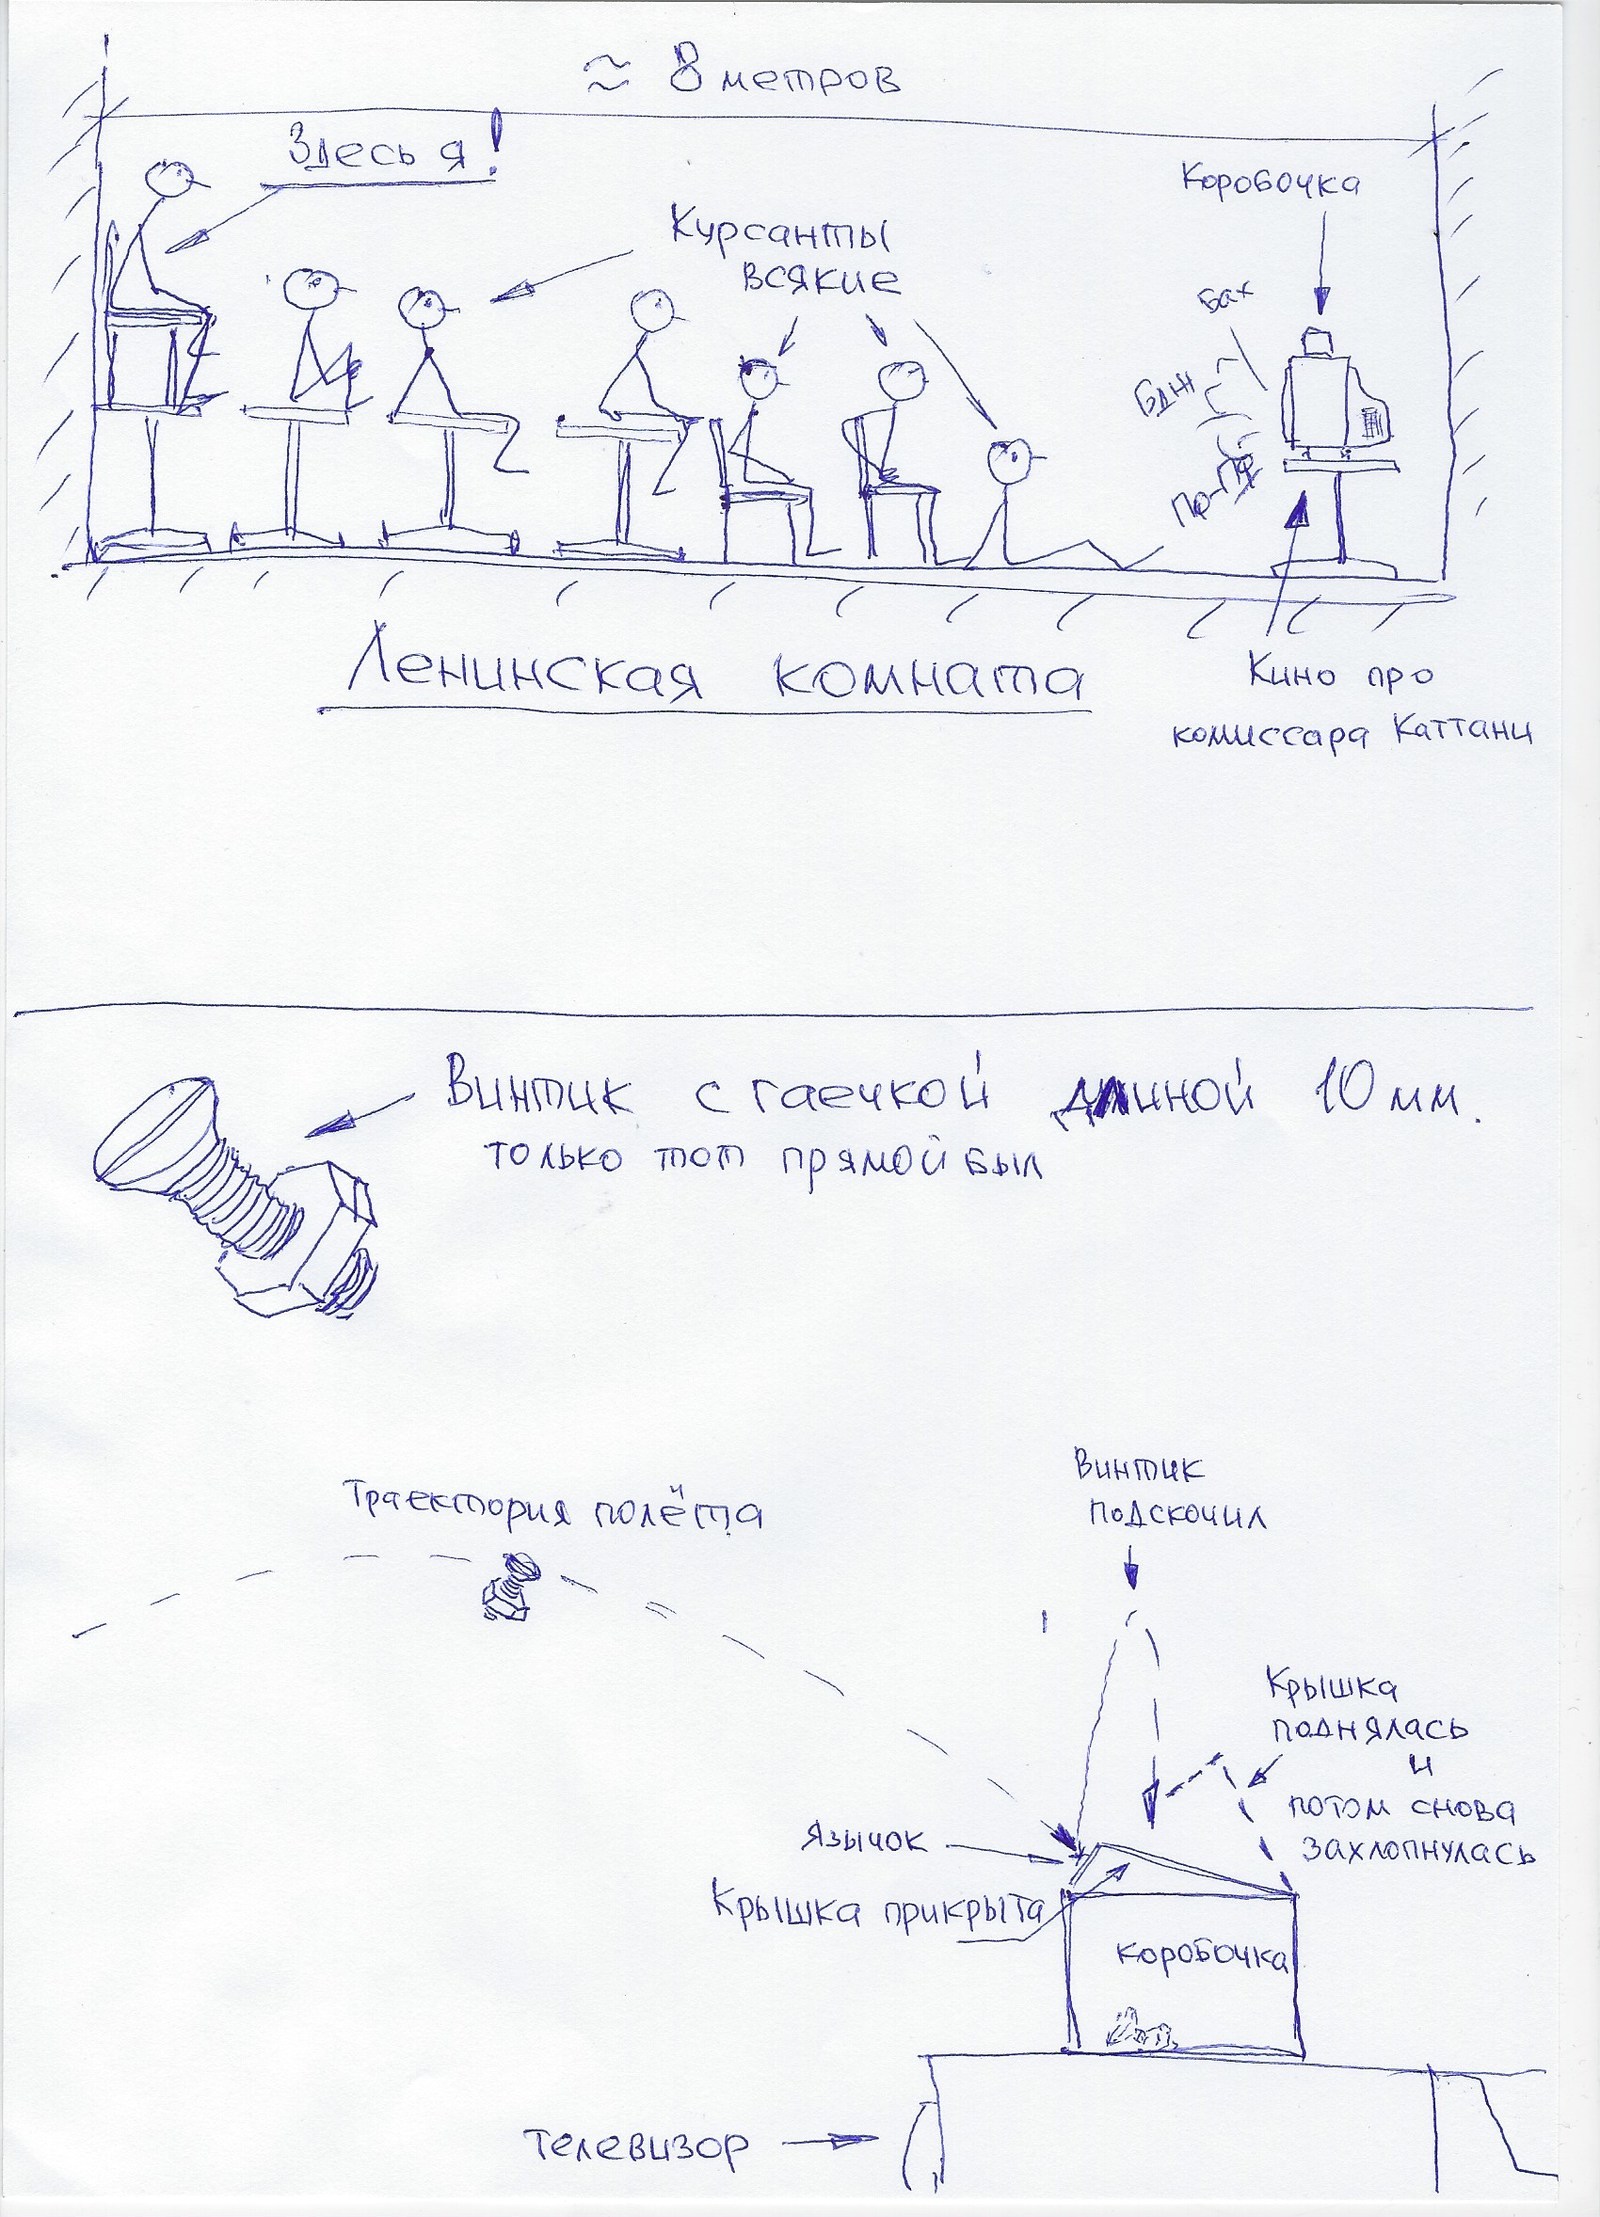 ≈ 8 метров
Здесь я!
Коробочка
Курсанты
всякие
Бах
Бдж
Ленинская комната
Кино про
комиссара Каттани
Винтик с гаечкой длиной 10 мм.
только тот прямой был
Винтик
подскочил
Траектория полёта
Крышка
поднялась
и
потом снова
захлопнулась
Язычок
Крышка прикрыта
коробочка
телевизор